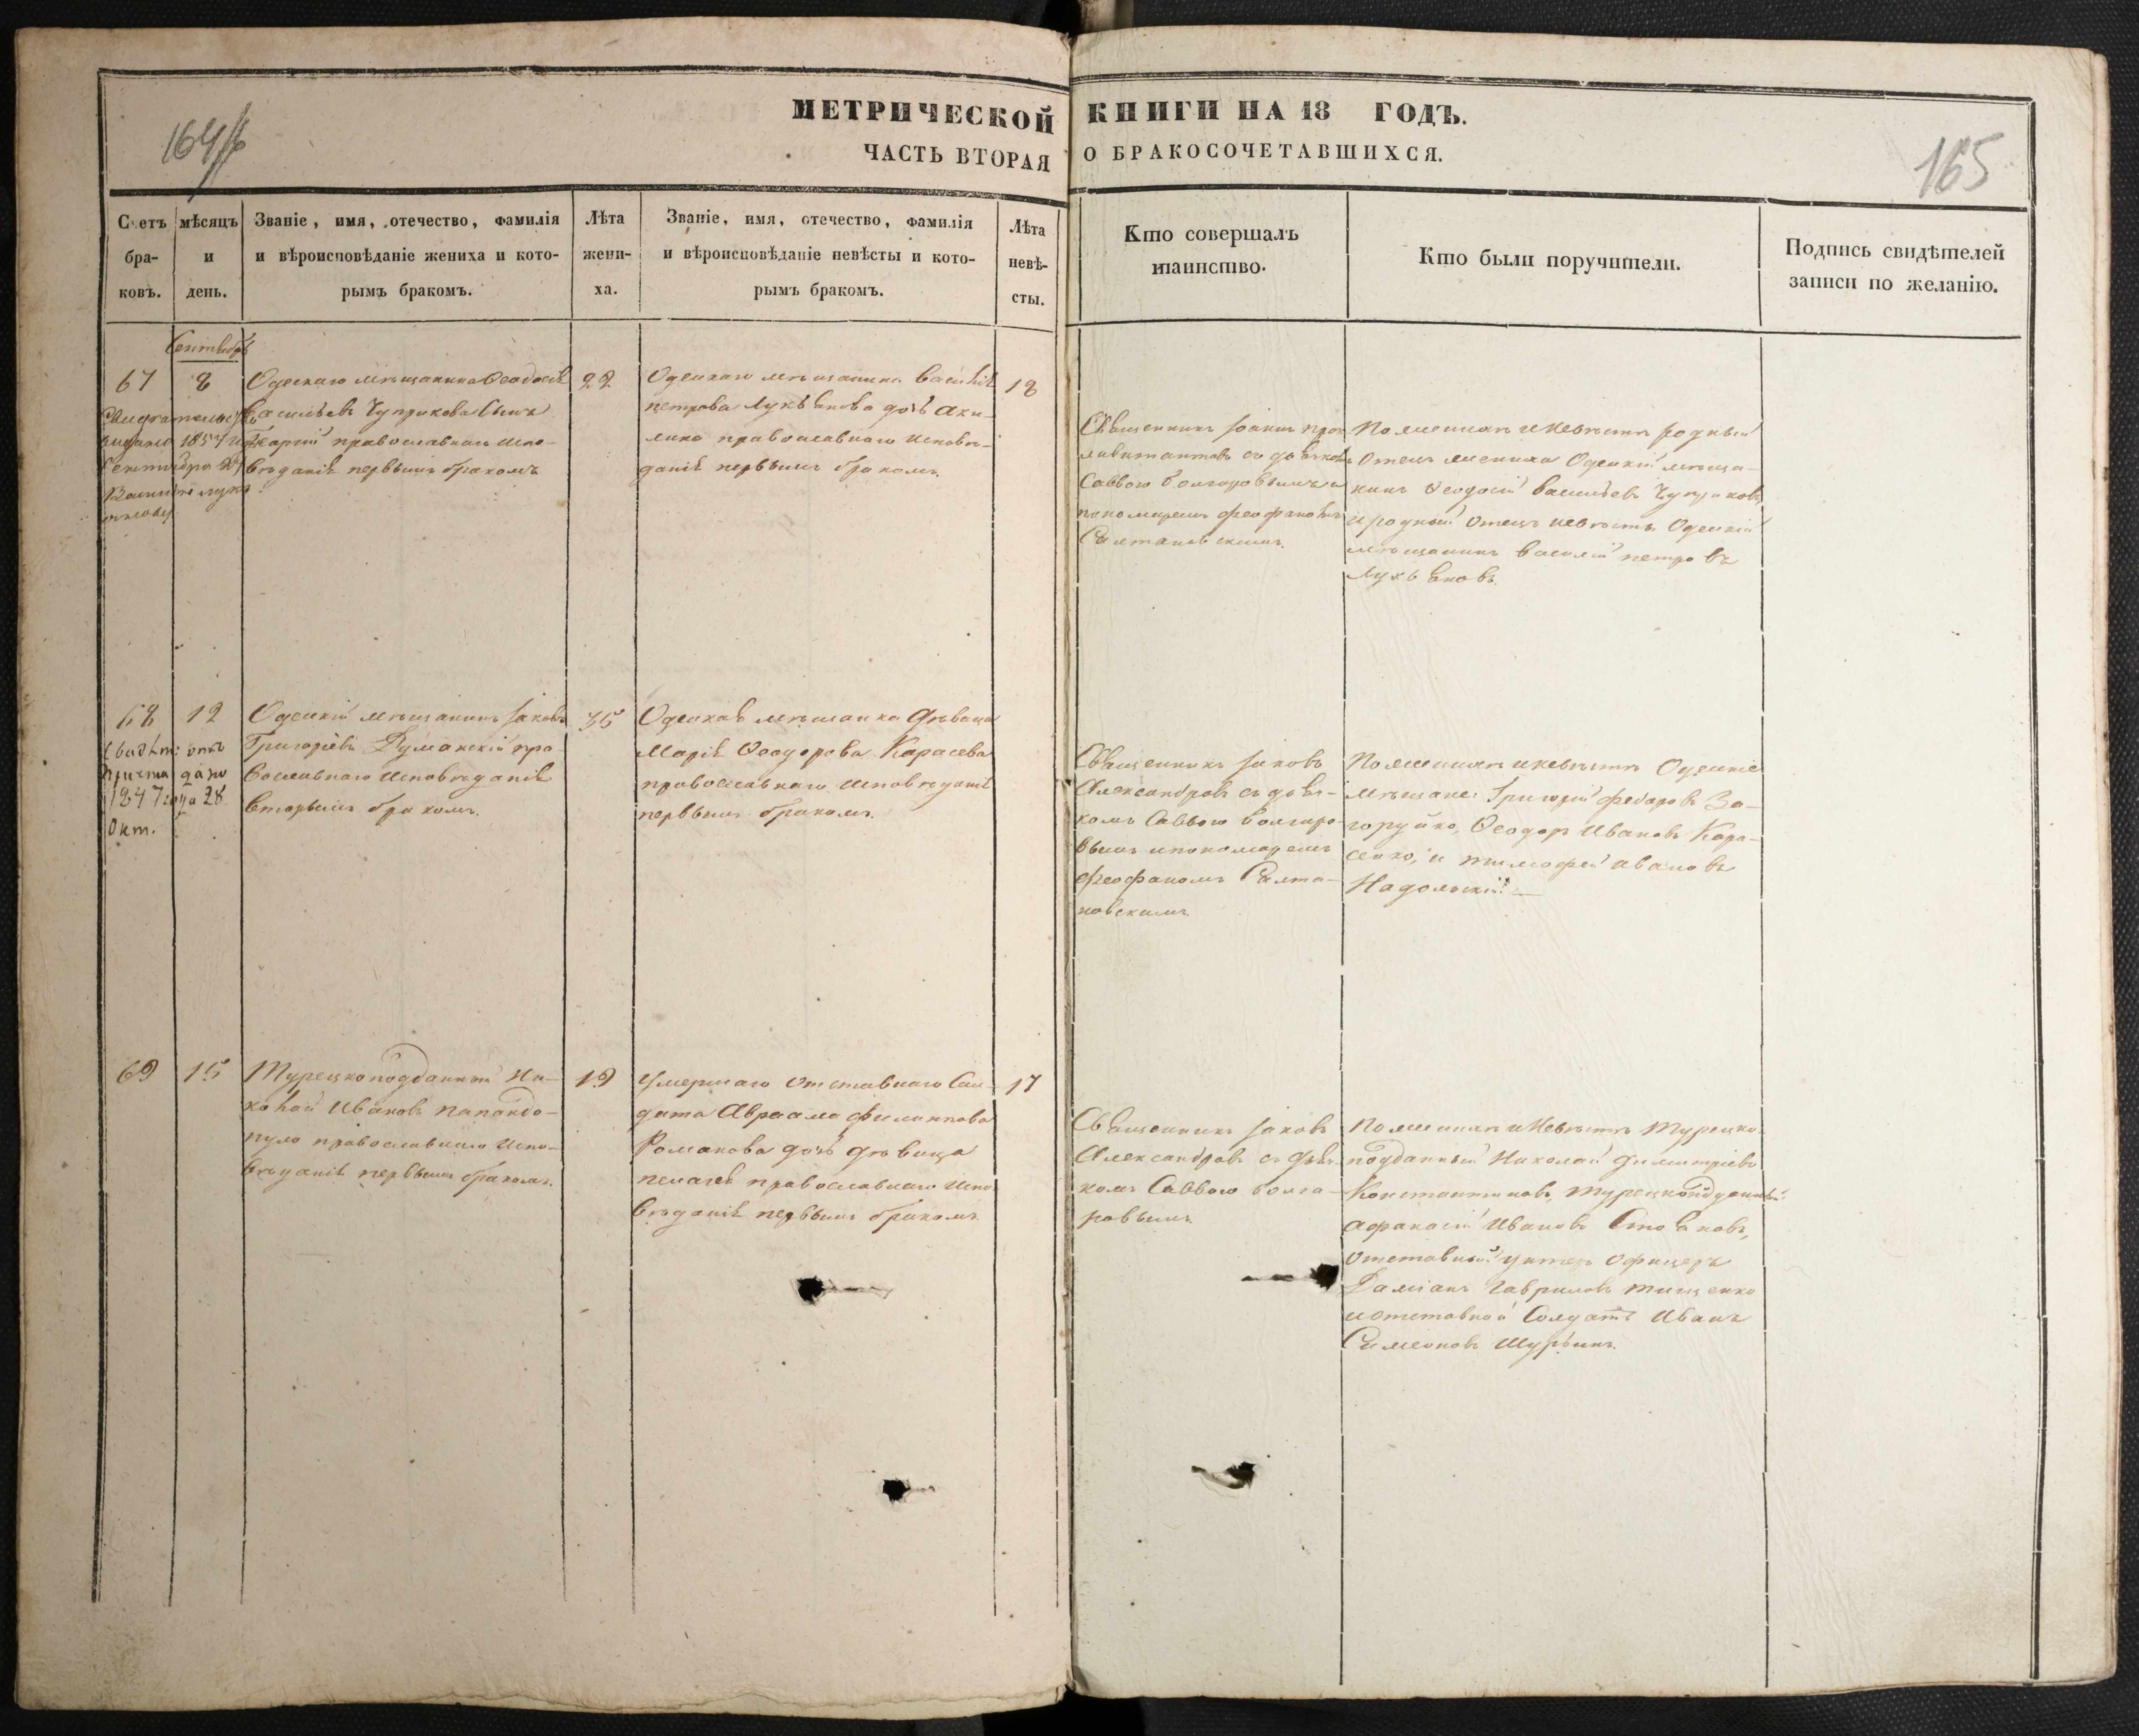 164/б
МЕТРИЧЕСКОЙ КНИГИ НА 18 ГОДЪ.
ЧАСТЬ ВТОРАЯ О БРАКОСОЧЕТАВШИХСЯ.
165
Счетъ бра-
ковъ.
мѣсяцъ
и
день.
Званіе, имя, отечество, фамилія
и вѣроисповѣданіе жениха и кото-
рымъ бракомъ.
Лѣта
жени-
ха.
Званіе, имя, отечество, фамилія
и вѣроисповѣданіе невѣсты и кото-
рымъ бракомъ.
Лѣта
невѣ-
сты.
Кто совершалъ
таинство.
Кто были поручители.
Подпись свидѣтелей
записи по желанію.
Сентябрь
67
8
Одескаго мѣщанина Ѳеодосія
Васильева Чуприкова сынъ
православнаго испо-
вѣданія первымъ бракомъ
22
Одескаго мѣщанина Василія
Петрова Лукьянова дочь Аку-
лина православнаго исповѣ-
данія первымъ бракомъ.
18
Священникъ Іоаннъ
съ дьячкомъ
Саввою Болгаровымъ и
пономаремъ Феофаномъ
Салтановскимъ.
По женихѣ и невѣстѣ родный
отецъ жениха Одескій мѣща-
нинъ Ѳеодосій Васильевъ Чуприковъ,
и родный отецъ невѣсты Одескій
мѣщанинъ Василій Петровъ
Лукьяновъ.
68
12
Свидѣт: отъ
причта дано
1847 года 28
Окт.
Одескій мѣщанинъ Іаковъ
Григорьевъ Думанскій пра-
вославнаго исповѣданія
вторымъ бракомъ.
35
Одеская мѣщанка дѣвица
Марія Ѳеодорова Карасева
православнаго исповѣданія
первымъ бракомъ.
Священникъ Іаковъ
Александровъ съ дьяч-
комъ Саввою Болгаро-
вымъ и пономаремъ
Феофаномъ Салта-
новскимъ
По женихѣ и невѣстѣ Одескіе
мѣщане: Григорій Федоровъ За-
горуйко, Ѳеодоръ Ивановъ Кара-
сенко, и Тимофей Ивановъ
Надольскій.
69
15
Турецкоподданный Ни-
колай Ивановъ Папандо-
пуло православнаго испо-
вѣданія первымъ бракомъ.
19
Умершаго отставнаго Сол-
дата Авраама Филиппова
Романова дочь дѣвица
Пелагея православнаго испо
вѣданія первымъ бракомъ
17
Священникъ Іаковъ
Александровъ съ дьяч-
комъ Саввою Болга-
ровымъ
По женихѣ и невѣстѣ Турецко-
подданный Николай Димитріевъ
Константиновъ, Турецкоподданный
Афанасій Ивановъ Стояновъ,
отставный унтеръ офицеръ
Даміанъ Гавриловъ Тищенко
и отставной Солдатъ Иванъ
Симеоновъ